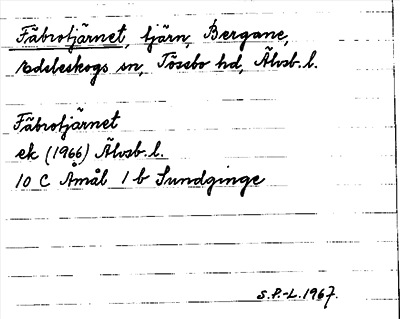 Fäbrotjärnet, tjärn, Bergane,
Edsleskogs sn, Tössbo hd, Älvsb. l.
Fäbrotjärnet
ek (1966) Älvsb. l.
10 C Åmål 1 b Sundginge
S.P.-L. 1967.